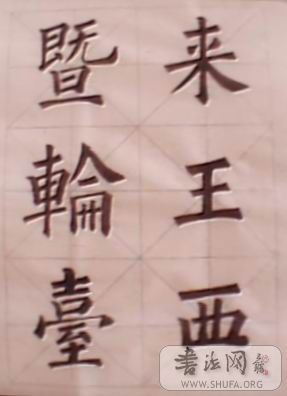 来王西
暨輪臺
書法网
WWW.SHUFA.ORG